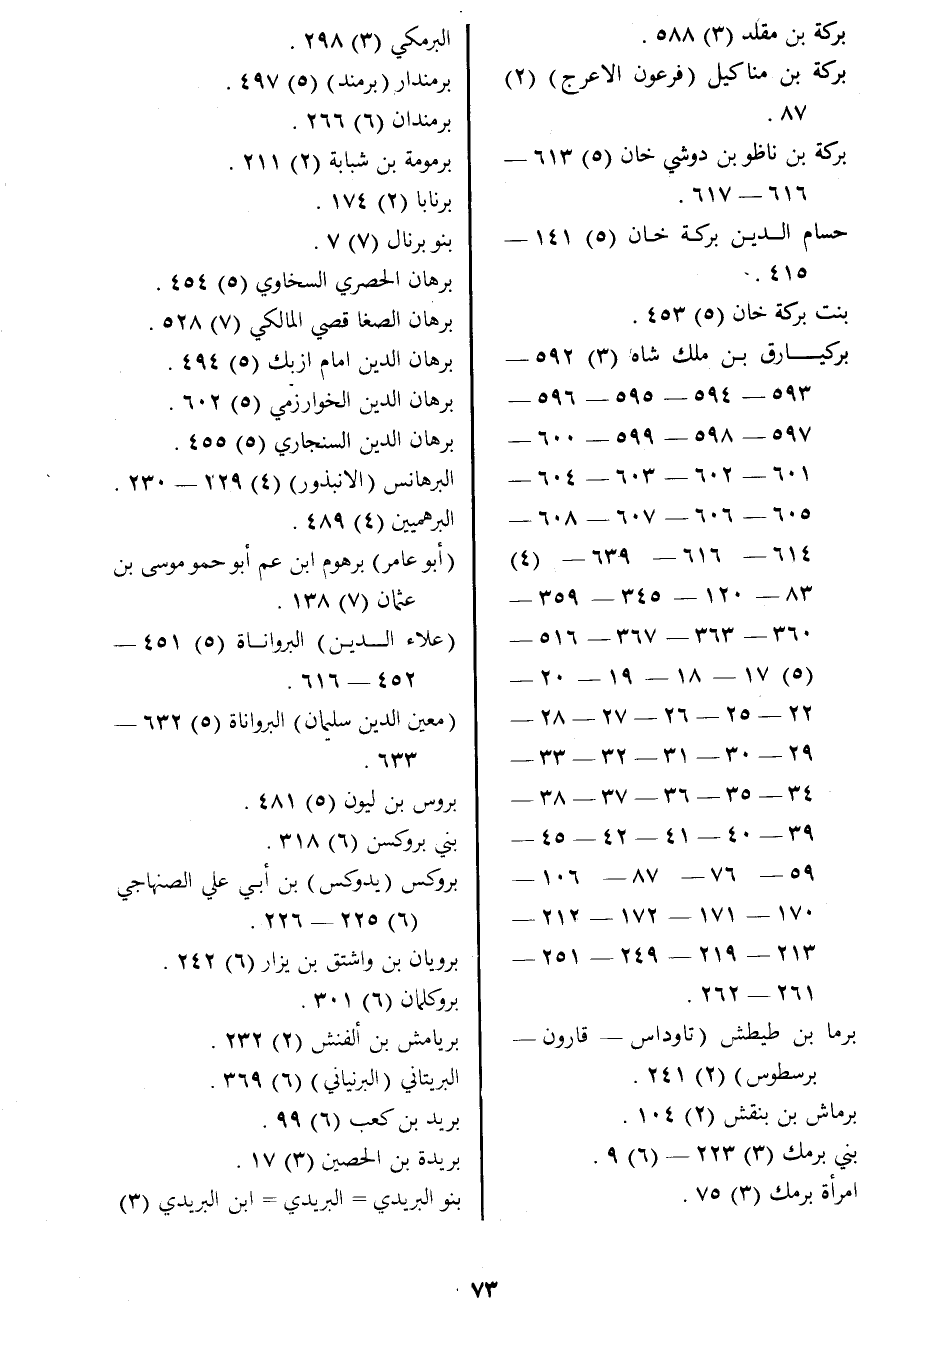 بركة بن مقلد (٣) ٥٨٨ .
بركة بن مناكيل (فرعون الاعرج) (٢)
٨٧ .
بركة بن ناظو بن دوشي خان (٥) ٦١٣ —
٦١٦ — ٦١٧ .
حسام الـدين بركة خان (٥) ١٤١ —
٤١٥ .
بنت بركة خان (٥) ٤٥٣ .
بركيـــارق بـن ملك شاه (٣) ٥٩٢ —
٥٩٣ — ٥٩٤ — ٥٩٥ — ٥٩٦ —
٥٩٧ — ٥٩٨ — ٥٩٩ — ٦٠٠ —
٦٠١ — ٦٠٢ — ٦٠٣ — ٦٠٤ —
٦٠٥ — ٦٠٦ — ٦٠٧ — ٦٠٨ —
٦١٤ — ٦١٦ — ٦٣٩ — (٤)
٨٣ — ١٢٠ — ٣٤٥ — ٣٥٩ —
٣٦٠ — ٣٦٣ — ٣٦٧ — ٥١٦ —
(٥) ١٧ — ١٨ — ١٩ — ٢٠ —
٢٢ — ٢٥ — ٢٦ — ٢٧ — ٢٨ —
٢٩ — ٣٠ — ٣١ — ٣٢ — ٣٣ —
٣٤ — ٣٥ — ٣٦ — ٣٧ — ٣٨ —
٣٩ — ٤٠ — ٤١ — ٤٢ — ٤٥ —
٥٩ — ٧٦ — ٨٧ — ١٠٦ —
١٧٠ — ١٧١ — ١٧٢ — ٢١٢ —
٢١٣ — ٢١٩ — ٢٤٩ — ٢٥١ —
٢٦١ — ٢٦٢ .
برما بن طيطش (تاوداس — قارون —
برسطوس) (٢) ٢٤١ .
برماش بن بنقش (٢) ١٠٤ .
بني برمك (٣) ٢٢٣ — (٦) ٩ .
امرأة برمك (٣) ٧٥ .
البرمكي (٣) ٢٩٨ .
برمندار (برمند) (٥) ٤٩٧ .
برمندان (٦) ٢٦٦ .
برمومة بن شبابة (٢) ٢١١ .
برنابا (٢) ١٧٤ .
بنو برنال (٧) ٧ .
برهان الحصري السخاوي (٥) ٤٥٤ .
برهان الصغا قصي المالكي (٧) ٥٢٨ .
برهان الدين امام ازبك (٥) ٤٩٤ .
برهان الدين الخوارزمي (٥) ٦٠٢ .
برهان الدين السنجاري (٥) ٤٥٥ .
البرهانس (الانبذور) (٤) ٢٢٩ — ٢٣٠ .
البرهميين (٤) ٤٨٩ .
(أبو عامر) برهوم ابن عم أبو حمو موسى بن
عثمان (٧) ١٣٨ .
(علاء الـــدين) البرواناة (٥) ٤٥١ —
٤٥٢ — ٦١٦ .
(معين الدين سليمان) البرواناة (٥) ٦٣٢ —
٦٣٣ .
بروس بن ليون (٥) ٤٨١ .
بني بروكسن (٦) ٣١٨ .
بروكس (يدوكس) بن أبي علي الصنهاجي
(٦) ٢٢٥ — ٢٢٦ .
برويان بن واشتق بن يزار (٦) ٢٤٢ .
بروكلمان (٦) ٣٠١ .
بريامش بن ألفنش (٢) ٢٣٢ .
البريتاني (البرنياني) (٦) ٣٦٩ .
بريد بن كعب (٦) ٩٩ .
بريدة بن الحصين (٣) ١٧ .
بنو البريدي = البريدي = ابن البريدي (٣)
٧٣